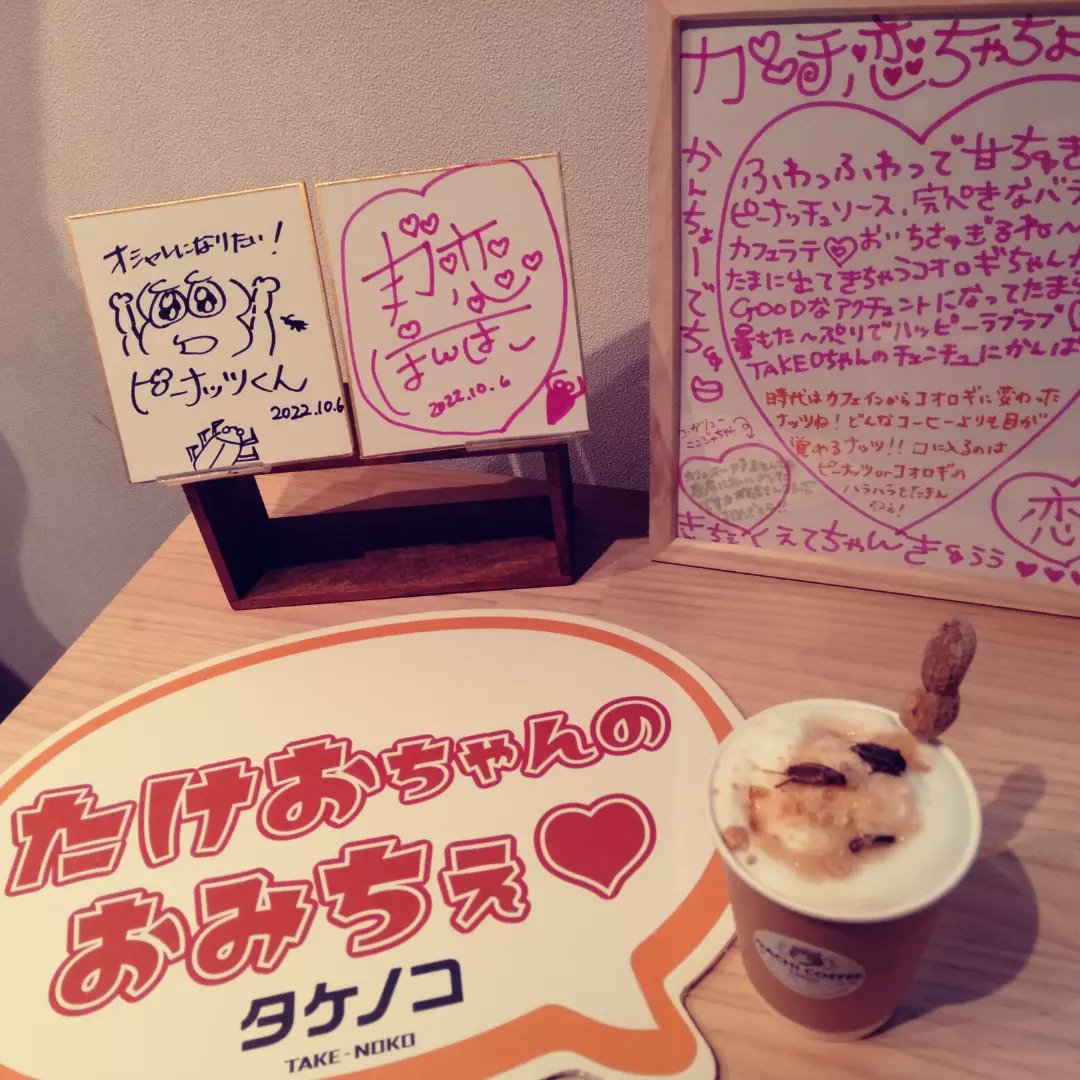 オシャレになりたい！
ピーナッツくん
2022.10.6
封恋
ぽんぽこ
2022.10.6
恋ちゃちょ
かんちょーでち
ふわっふわっで甘ちゅぎ
ピーナッチュソース、完ぺきなバラ
カフェラテ♡おいちさすぎるね〜
たまに出てきちゃうコオロギちゃんが
GOODなアクチェントになってたまら
量もた〜ぷりでハッピーラブラブ
TAKEOちゃんのチェンチュにかんぱ
時代はカフェインからコオロギに変わった
ナッツね！どんなコーヒーよりも目が
覚めるナッツ!!口に入るのは
ピーナッツorコオロギの
ハラハラもたまん
ねぇ！
恋
たけおちゃんの
おみちぇ♥
タケノコ
TAKE-NOKO
COFFEE